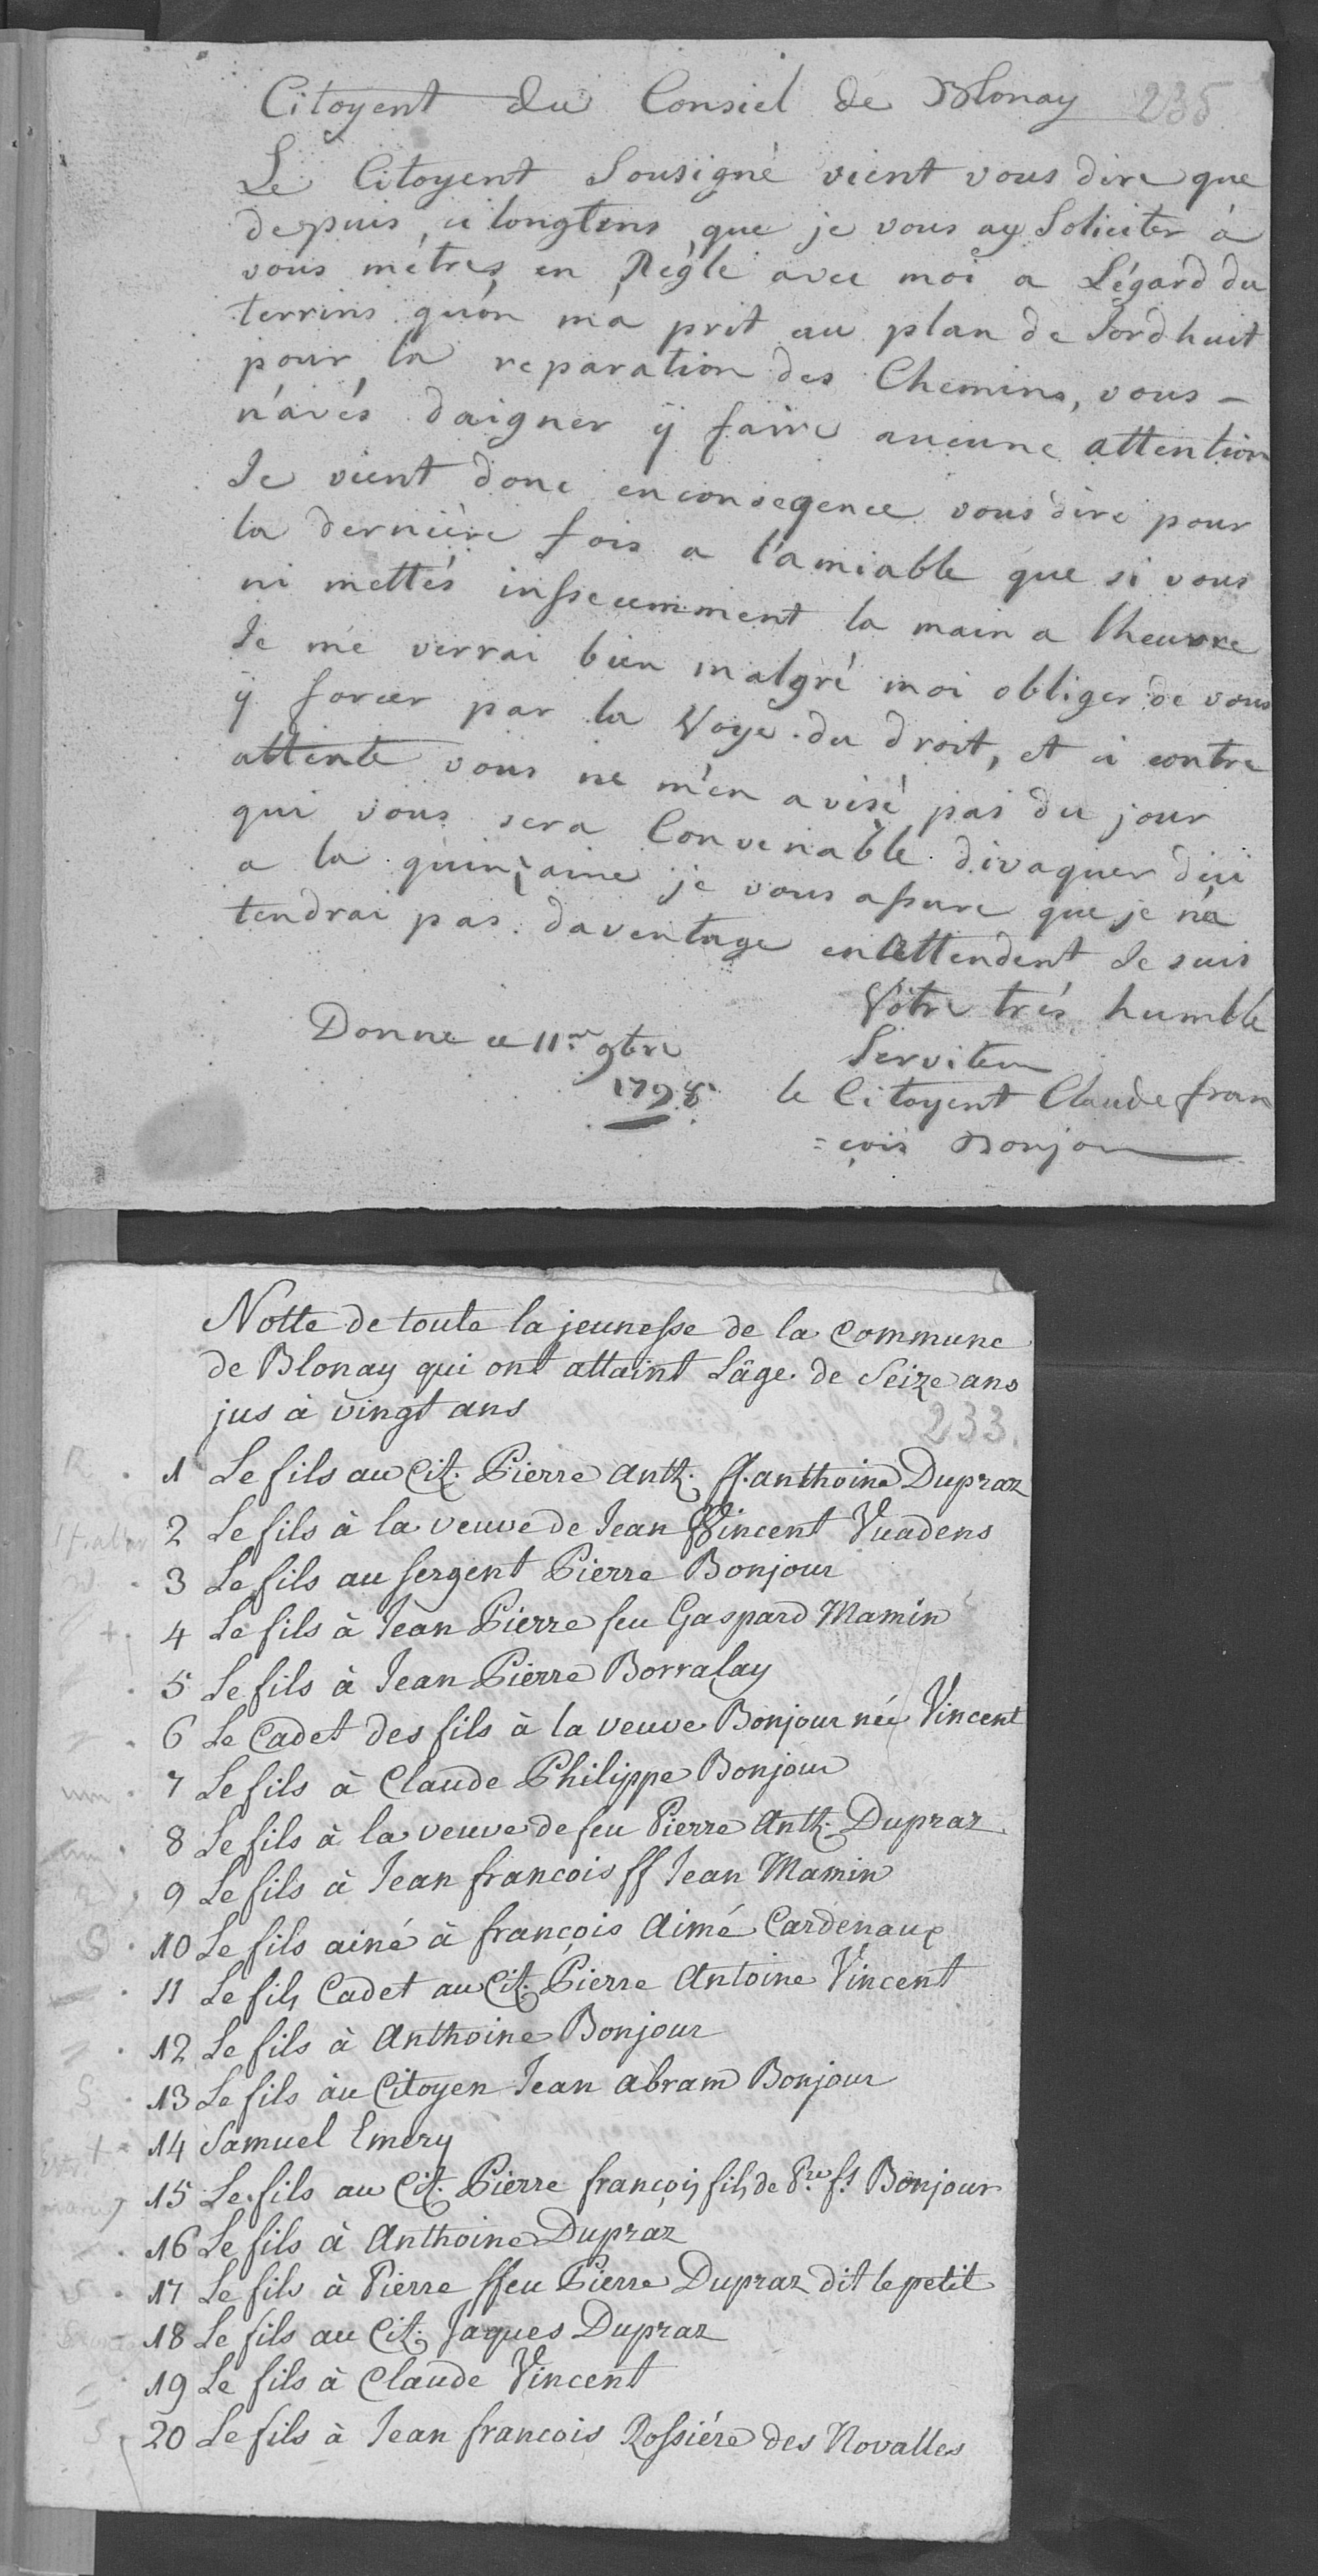 Citoyent du Consiel de Blonay 235
Le Citoyent Sousigné vient vous dire que
depuis, si longtems que je vous ay Soliciter à
vous métres en Regle avec moi a Légard du
terrins qu'on ma prit au plan de Jordhuit
pour la reparation des Chemins, vous –
n'avés daigner ÿ faire aucune attention
Je vient donc enconsegence vous dire pour
la derniére fois a l'amiable que si vous
ni mettés inssecemment la main a lheuvre
Je me verrai bien malgré moi obliger de vous
ÿ forcer par la Voye du droit, et si contre
attente vous ne m'en avisé pas du jour
qui vous sera Convenable divaquer dici
a la quinzaine je vous assure que je na
tendrai pas daventage enattendent Je suis
Vôtre trés humble
Donne ce 11me 9bre Serviteur
1798 le Citoyent Claude fran
=çois Bonjour
Notte de toute la jeunesse de la Commune
de Blonay qui ont attaint Lâge de Seize ans
jus à vingt ans
233.
1 Le fils au Cit. Pierre Anth. ff. anthoine Dupraz
2 Le fils à la veuve de Jean ff Vincent Vuadens
3 Le fils au sergent Pierre Bonjour
4 Le fils à Jean Pierre feu Gaspard Mamin
5 Le fils à Jean Pierre Borralay
6 Le Cadet des fils à la veuve Bonjour née Vincent
7 Le fils à Claude Philippe Bonjour
8 Le fils à la veuve de feu Pierre Anth. Dupraz
9 Le fils à Jean francois ff Jean Mamin
10 Le fils ainé à françois Aimé Cardenaux
11 Le fils Cadet au Cit. Pierre Antoine Vincent
12 Le fils à Anthoine Bonjour
13 Le fils au Citoyen Jean abram Bonjour
14 Samuel Emery
15 Le fils au Cit. Pierre françois fils de Pre fs Bonjour
16 Le fils à Anthoine Dupraz
17 Le fils à Pierre ffeu Pierre Dupraz dit le petit
18 Le fils au Cit. Jaques Dupraz
19 Le fils à Claude Vincent
20 Le fils à Jean francois Rossiére des Novalles